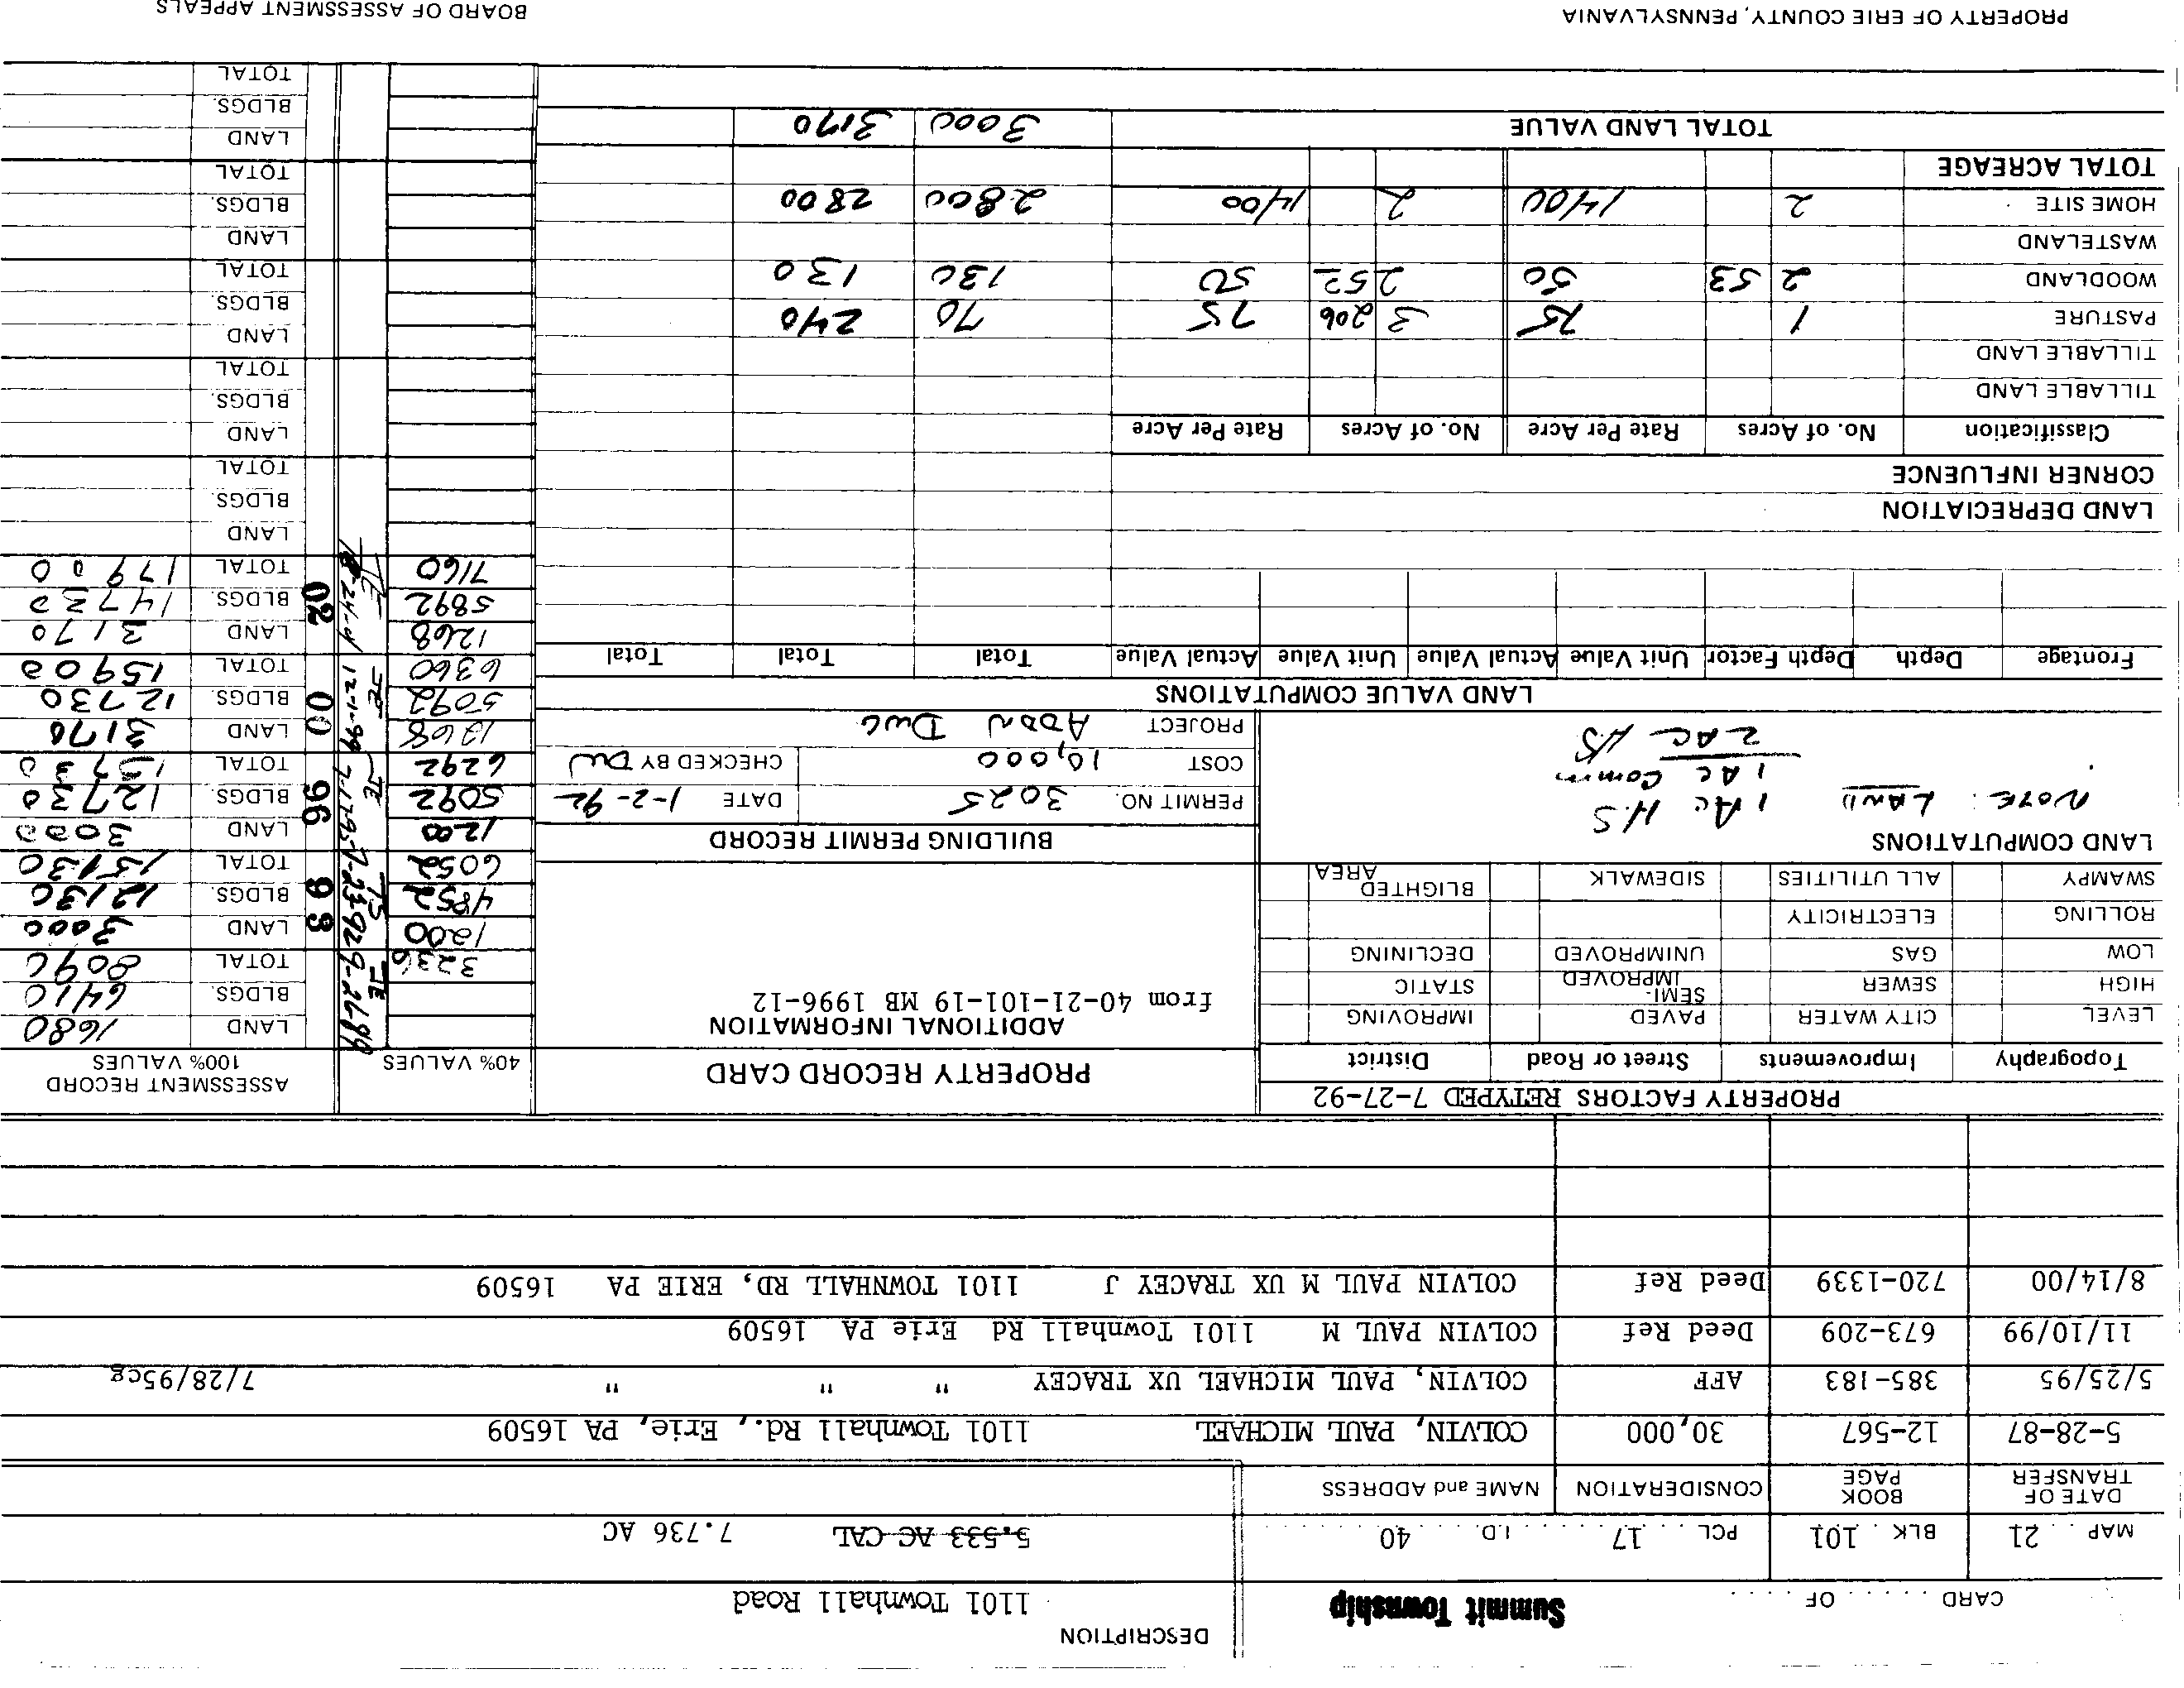 CARD . . . . . . OF . . . . . .
Summit Township
DESCRIPTION
1101 Townhall Road
MAP 21 BLK 101 PCL 17 I.D. 40
5.533 AC CAL 7.736 AC
DATE OF TRANSFER BOOK PAGE CONSIDERATION NAME and ADDRESS
5-28-87 12-567 30,000 COLVIN, PAUL MICHAEL 1101 Townhall Rd., Erie, PA 16509
5/25/95 385-183 AFF COLVIN, PAUL MICHAEL UX TRACEY " " " 7/28/95cg
11/10/99 673-209 Deed Ref COLVIN PAUL M 1101 Townhall Rd Erie PA 16509
8/14/00 720-1339 Deed Ref COLVIN PAUL M UX TRACEY J 1101 TOWNHALL RD, ERIE PA 16509
PROPERTY FACTORS RETYPED 7-27-92
Topography Improvements Street or Road District
LEVEL CITY WATER PAVED IMPROVING
HIGH SEWER SEMI-IMPROVED STATIC
LOW GAS UNIMPROVED DECLINING
ROLLING ELECTRICITY
SWAMPY ALL UTILITIES SIDEWALK BLIGHTED AREA
LAND COMPUTATIONS
NOTE: LAND 1 AC H.S
1 AC Comm
2 AC H.S
PROPERTY RECORD CARD
ADDITIONAL INFORMATION
from 40-21-101-19 MB 1996-12
BUILDING PERMIT RECORD
PERMIT NO. 3025 DATE 1-2-92
COST 10,000 CHECKED BY DW
PROJECT ADDN DWG
40% VALUES ASSESSMENT RECORD 100% VALUES
LAND 1680
BLDGS. 6410
3236 TOTAL 8090
9-26-89
JE
1200 LAND 3000
4852 BLDGS. 12130
6052 TOTAL 15130
93
7-23-92
TS
1200 LAND 3000
5092 BLDGS. 12730
6292 TOTAL 15730
96
7-17-95
JE
1268 LAND 3170
5092 BLDGS. 12730
6360 TOTAL 15900
00
12-1-99
JE
1268 LAND 3170
5892 BLDGS. 14730
7160 TOTAL 17900
02
JE
LAND
BLDGS.
TOTAL
LAND
BLDGS.
TOTAL
LAND
BLDGS.
TOTAL
LAND
BLDGS.
TOTAL
LAND
BLDGS.
TOTAL
LAND VALUE COMPUTATIONS
Frontage Depth Depth Factor Unit Value Actual Value Unit Value Actual Value Total Total Total
LAND DEPRECIATION
CORNER INFLUENCE
Classification No. of Acres Rate Per Acre No. of Acres Rate Per Acre
TILLABLE LAND
TILLABLE LAND
PASTURE 1 75 3 206 75 70 240
WOODLAND 2 53 50 2 52 50 130 130
WASTELAND
HOME SITE 2 1400 2 1400 2800 2800
TOTAL ACREAGE
TOTAL LAND VALUE 3000 3170
PROPERTY OF ERIE COUNTY, PENNSYLVANIA BOARD OF ASSESSMENT APPEALS